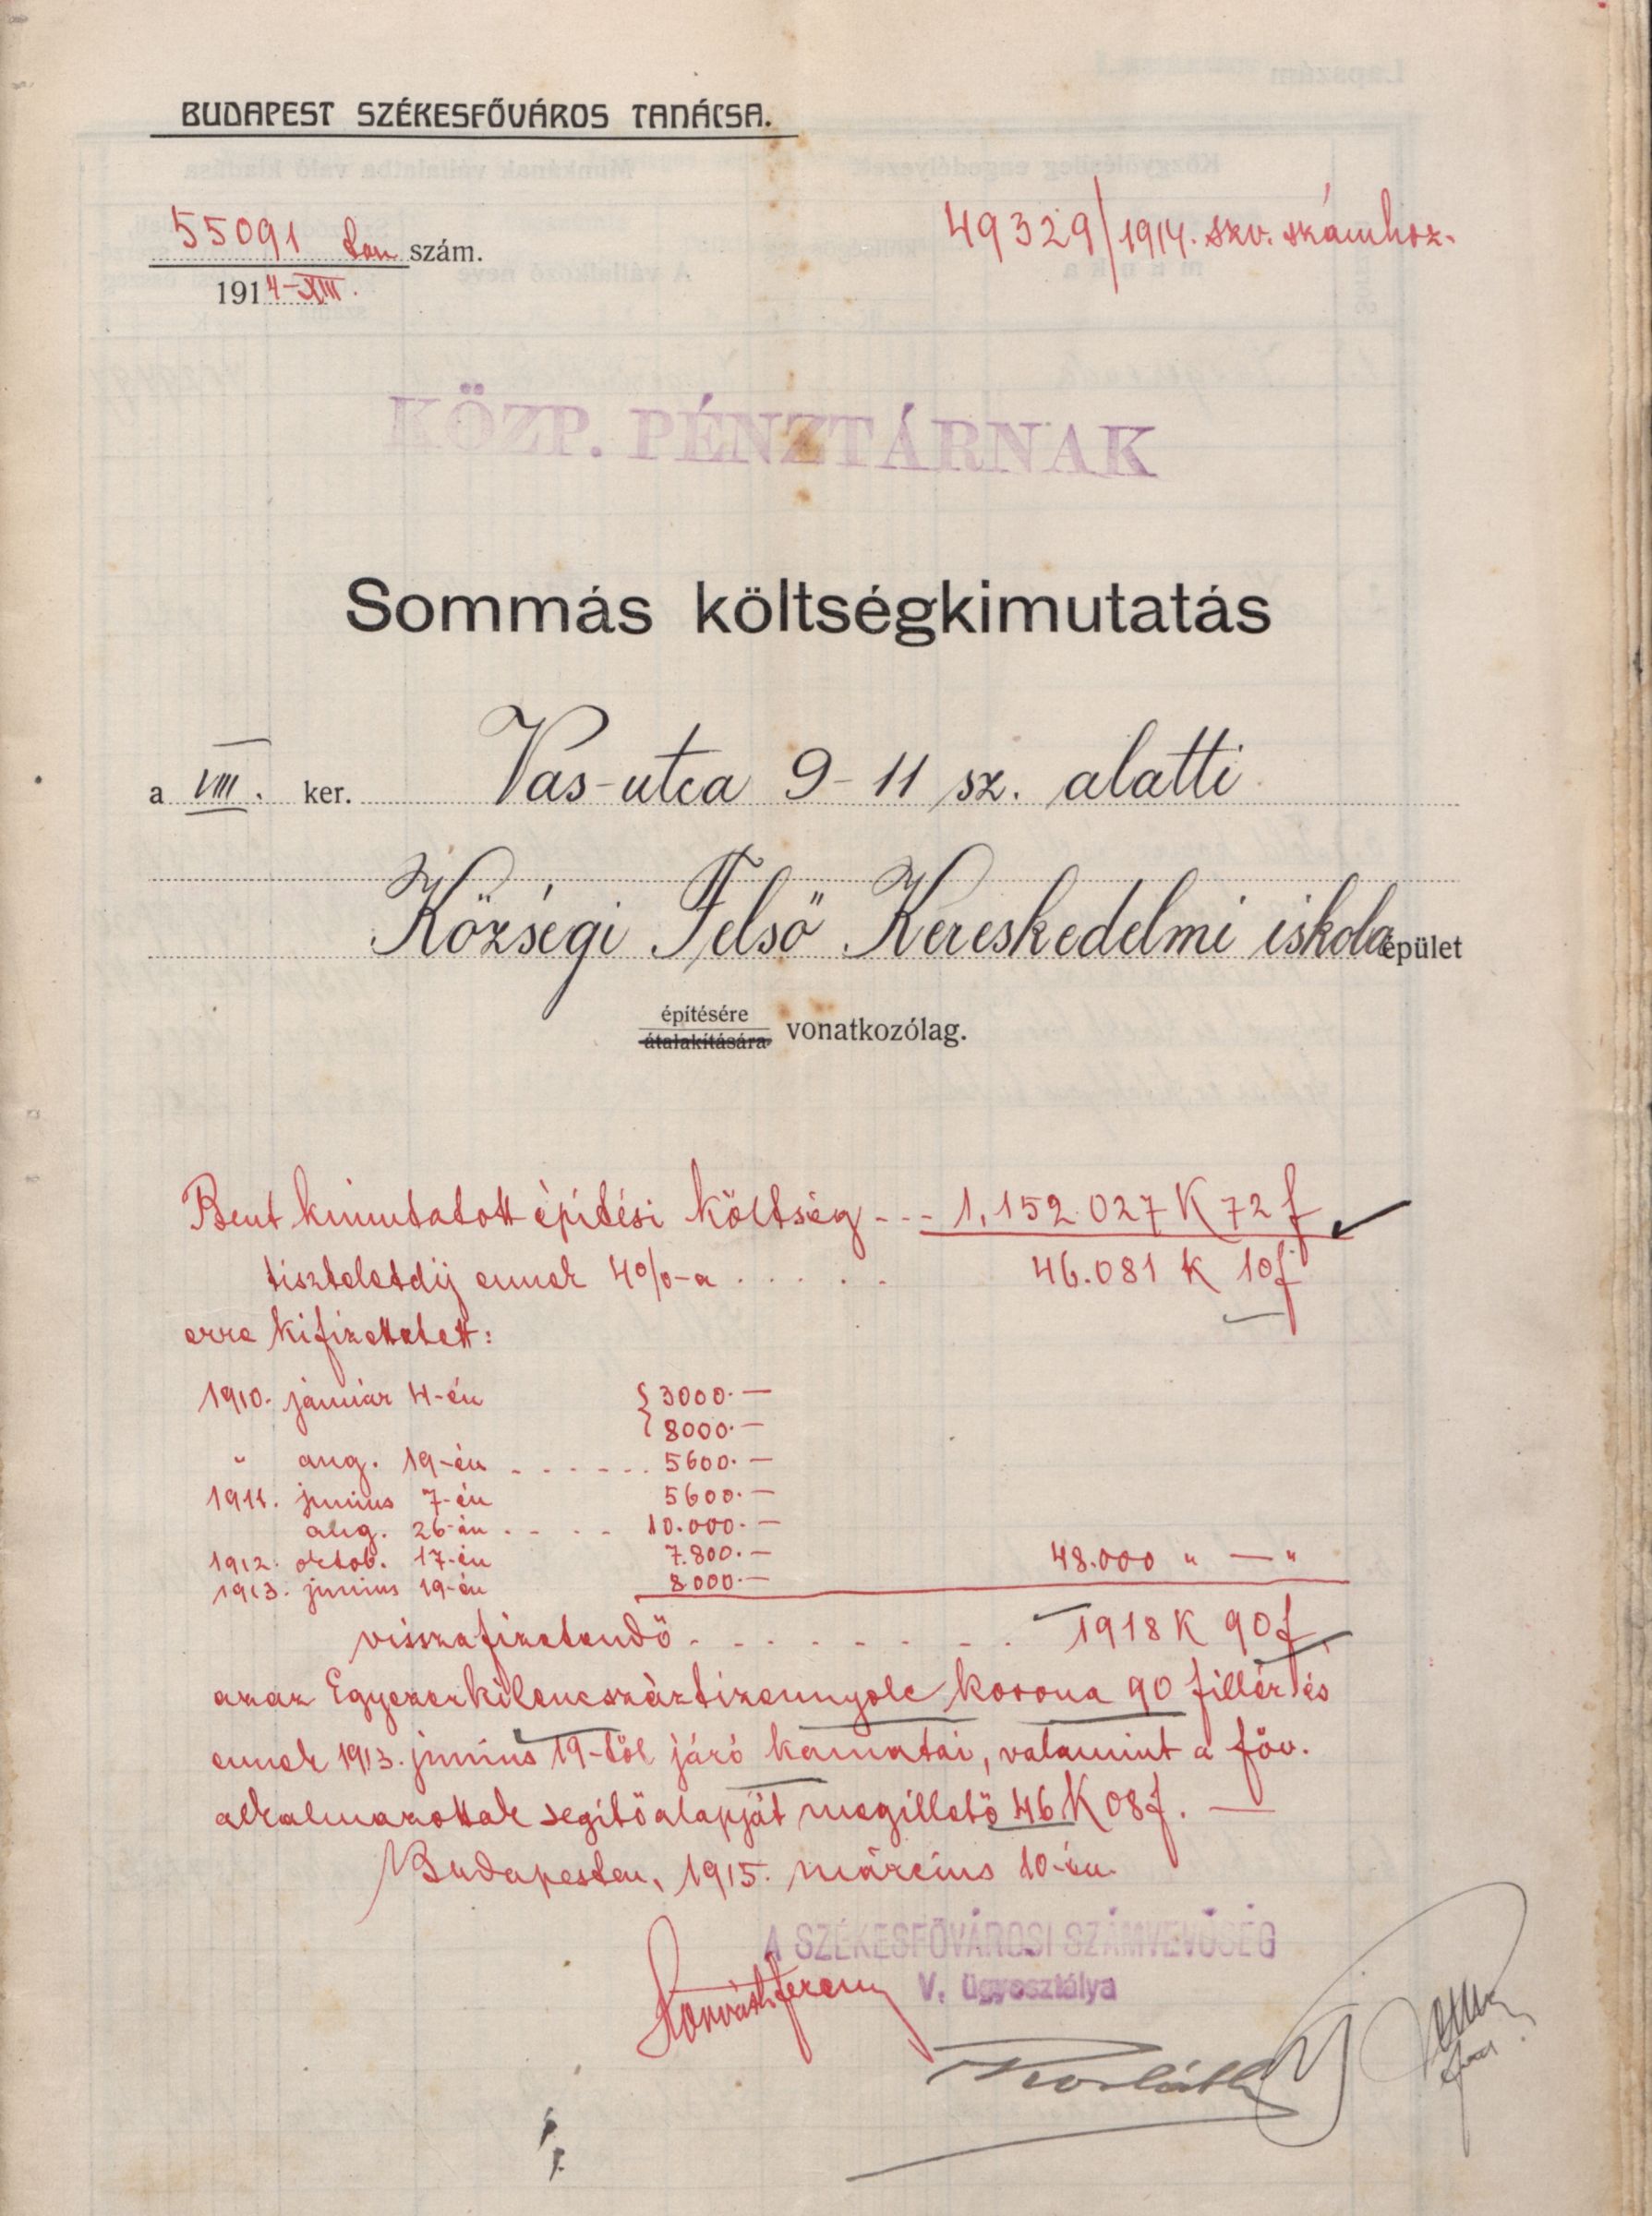 BUDAPEST SZÉKESFŐVÁROS TANÁCSA.
55091 tan szám.
1914-XIII.
49329/1914. szv. számhoz.
KÖZP. PÉNZTÁRNAK
Sommás költségkimutatás
a VIII. ker. Vas-utca 9-11 sz. alatti
Községi Felső Kereskedelmi iskola épület
építésére
átalakítására vonatkozólag.
Bent kimutatott építési költség --- 1.152.027 K 72 f
tiszteletdíj ennek 4%-a . . . . . 46.081 K 10 f
erre kifizettetett:
1910. január 4-én { 3000.—
8000.—
" aug. 19-én . . . . . . 5600.—
1911. junius 7-én 5600.—
aug. 26-án . . . . 10.000.—
1912. oktob. 17-én 7.800.— 48.000 " — "
1913. junius 19-én 8000.—
visszafizetendő . . . . . . . . 1918 K 90 f.
azaz Egyezerkilencszáztizennyolc korona 90 fillér és
ennek 1913. junius 19-től járó kamatai, valamint a főv.
alkalmazottak segítőalapját megillető 46 K 08 f. —
Budapesten, 1915. március 10-én.
A SZÉKESFŐVÁROSI SZÁMVEVŐSÉG
V. ügyosztálya
Horváth Ferenc